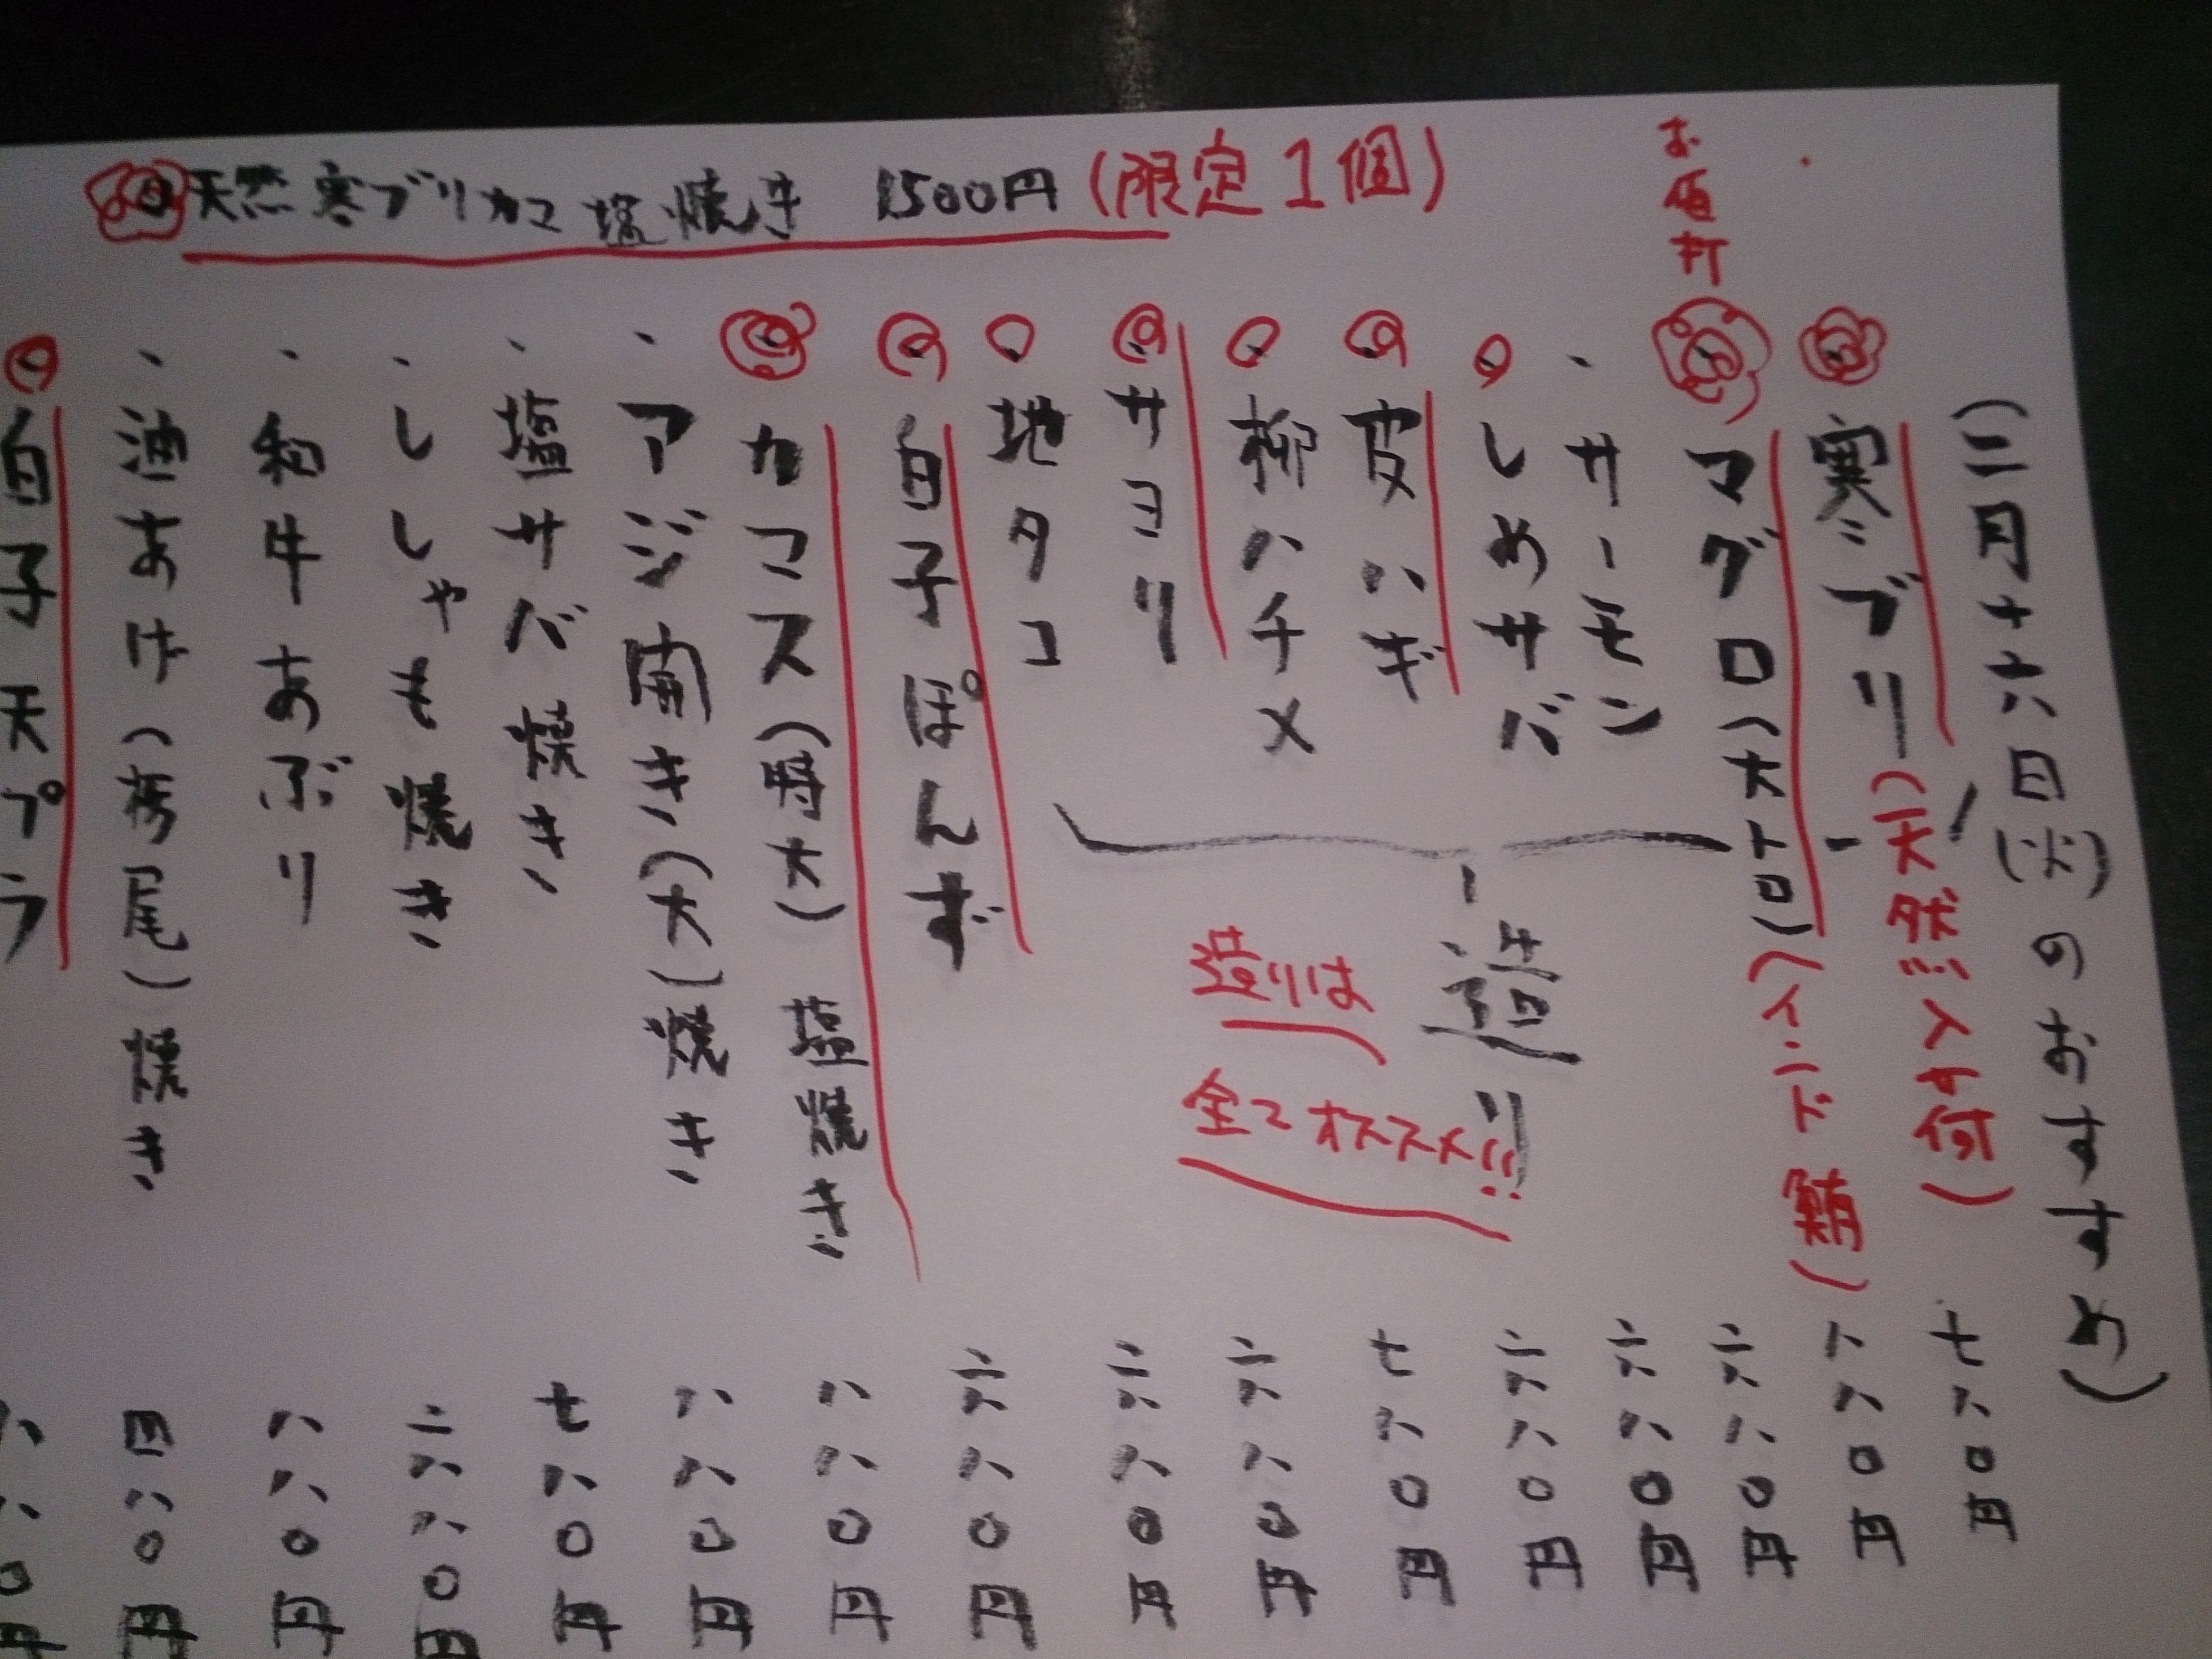 天然寒ブリカマ塩焼き 1500円(限定1個)
(二月十六日(火)のおすすめ)
寒ブリ(天然!!! 七八〇円
お値打
マグロ(大トロ)(インド鮪) 八八〇円
サーモン 六八〇円
しめサバ 六八〇円
皮ハギ 六八〇円
柳ハチメ 七八〇円
サヨリ 六八〇円
地タコ 六八〇円
造り
造りは
全てオススメ!!
白子ぽんず 六八〇円
カマス(特大)塩焼き 八八〇円
アジ開き(大)焼き 八八〇円
塩サバ焼き 七八〇円
ししゃも焼き 六八〇円
和牛あぶり 八八〇円
油あげ(栃尾)焼き 四八〇円
白子天プラ 八八〇円